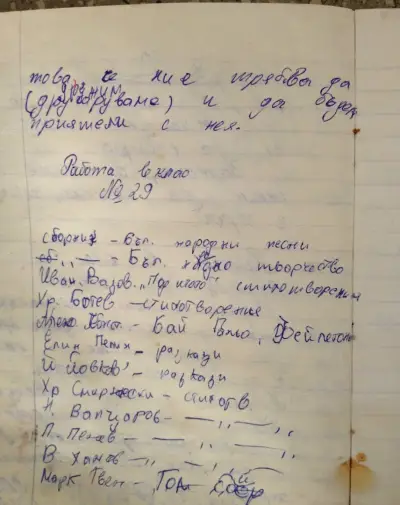 това е ние трябва да
дружим
(другаруваме) и да бъдем
приятели с нея.
Работа в клас
№ 29
сборник - Бъл. народни песни
-„- - Бъл. народно творчество
Иван Вазов - „Под игото" стихотворения
Хр. Ботев - стихотворение
Алеко Конст - Бай Ганьо, Фейлетони
Елин Пелин - разкази
Й Йовков - разкази
Хр Смирненски - стихотв.
Н. Вапцаров - — „ — „
П. Пенев - — „ — „
В Ханчев - „ — „
Марк Твен - Том Сойер